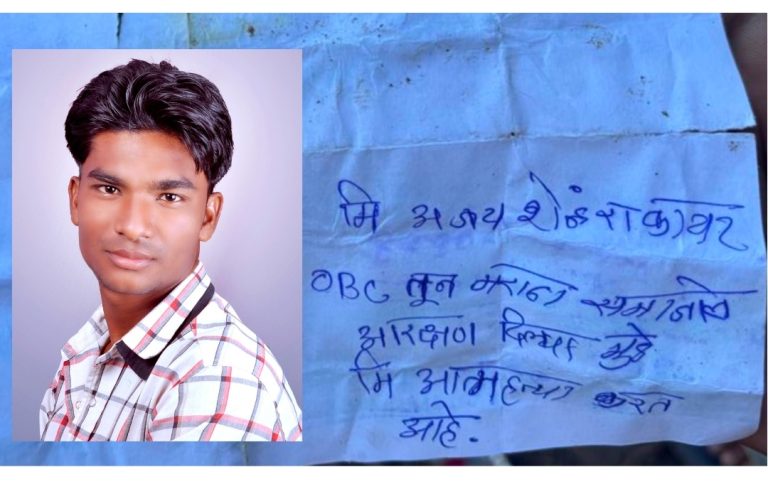 मि अजय शेळंराकावर
OBC तून मराठा समाजाले
आरक्षण दिल्या मुळे
मि आत्महत्या करत
आहे.